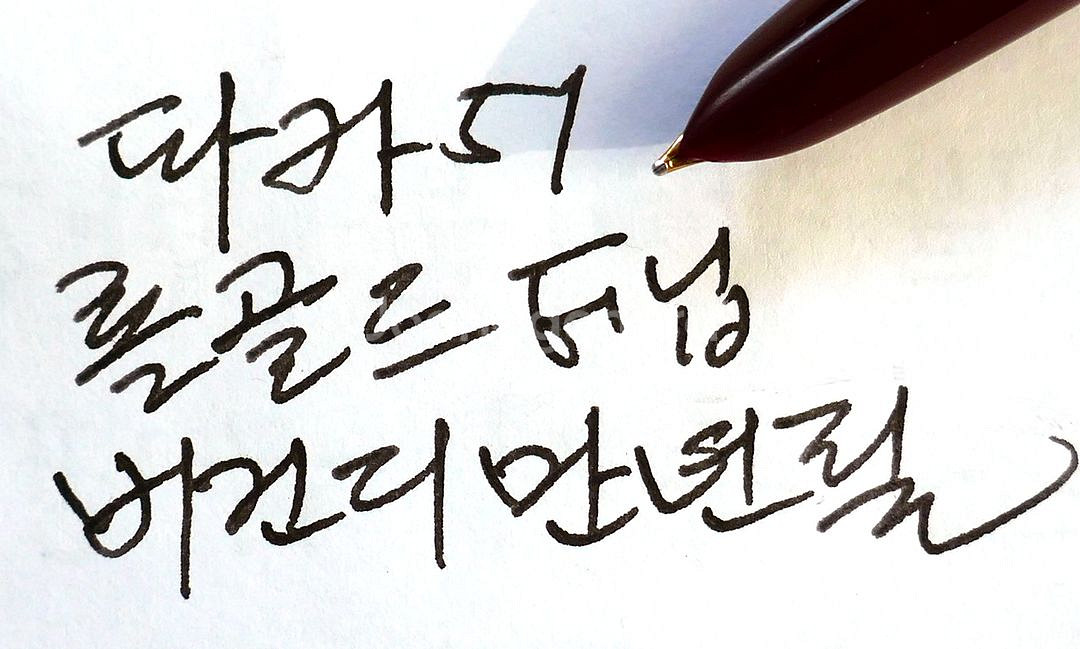 파카 51
롤골드
버건디 만년필